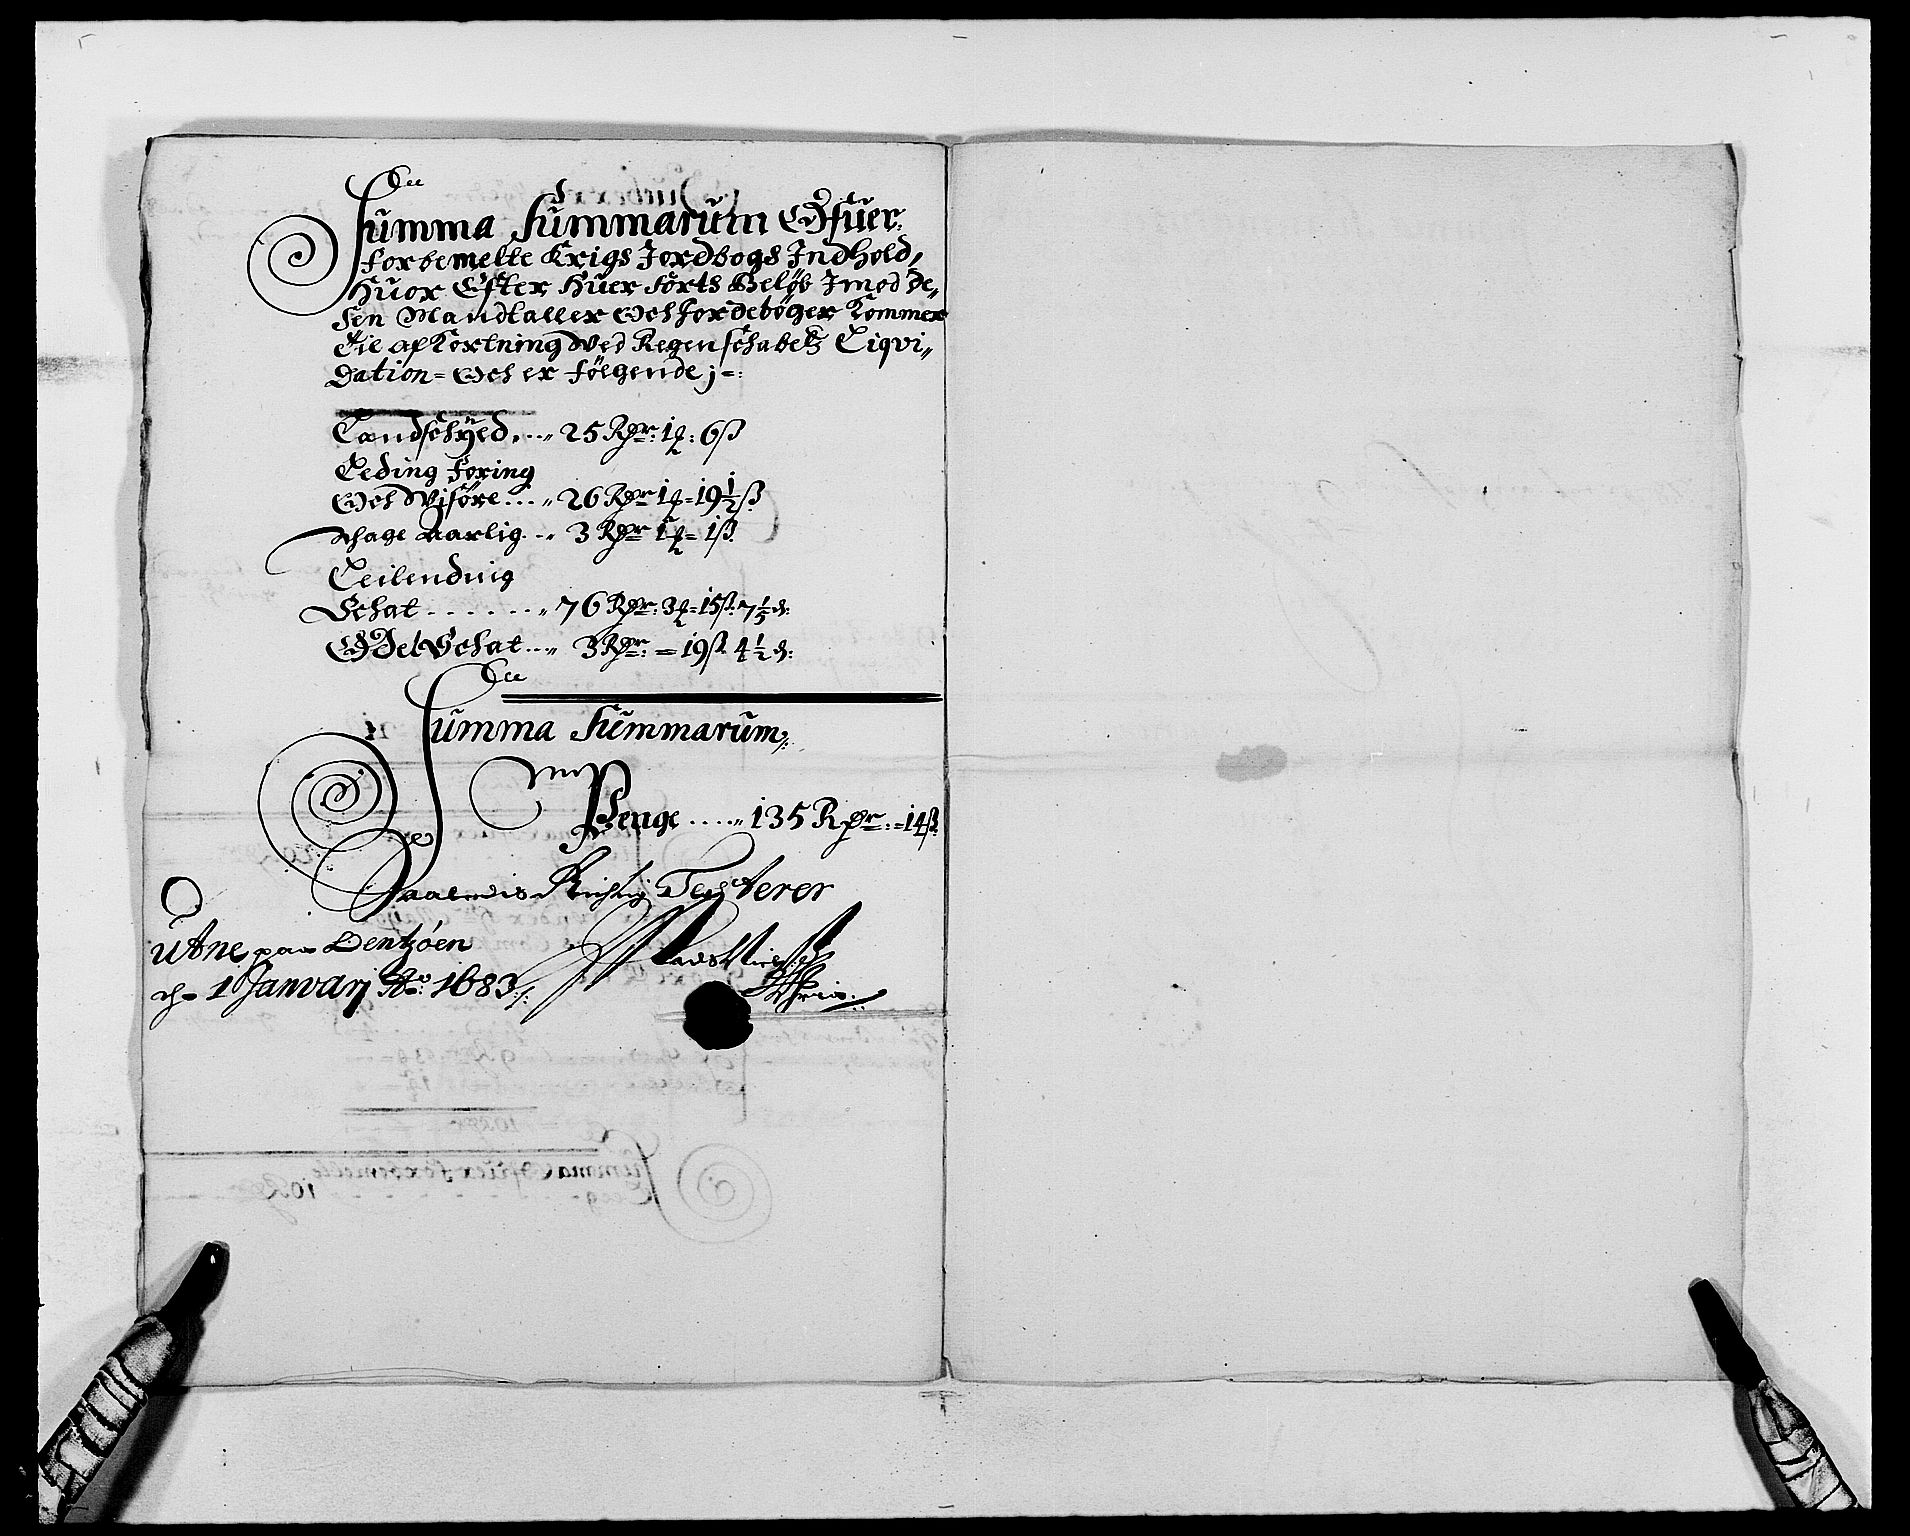 Summa Summarum Ofuer
forbemelte Krigs Jordbogs Indhold,
Huor Efter Huer sorts Beløb Imod de„
sen Mandtaller och Jordebøger Kommer
til afkortning Ved Regenschabets Liqvi„
dation = och er følgende ; = :
Landschÿld . . . „ 25 Rdr: 1 ꝑ: 6 ß
Leding foring
och Visøre . . . „ 26 Rdr 1 ꝑ = 19 1/2 ß
schage Aarlig . . „ 3 Rdr 1 ꝑ = 1 ß
Leilending
Schat . . . . . . „ 76 Rdr: 3 ꝑ = 15 ß: 7 1/5 d:
OdelSchat . . . „ 3 Rdr: = 19 ß 4 1/2 d:
Summa Summarum
Penge . . . . . „ 135 Rdr: = 14 ß
Saaledis Richtig Testerer
Utne paa
1 Januarj Ao: 1683